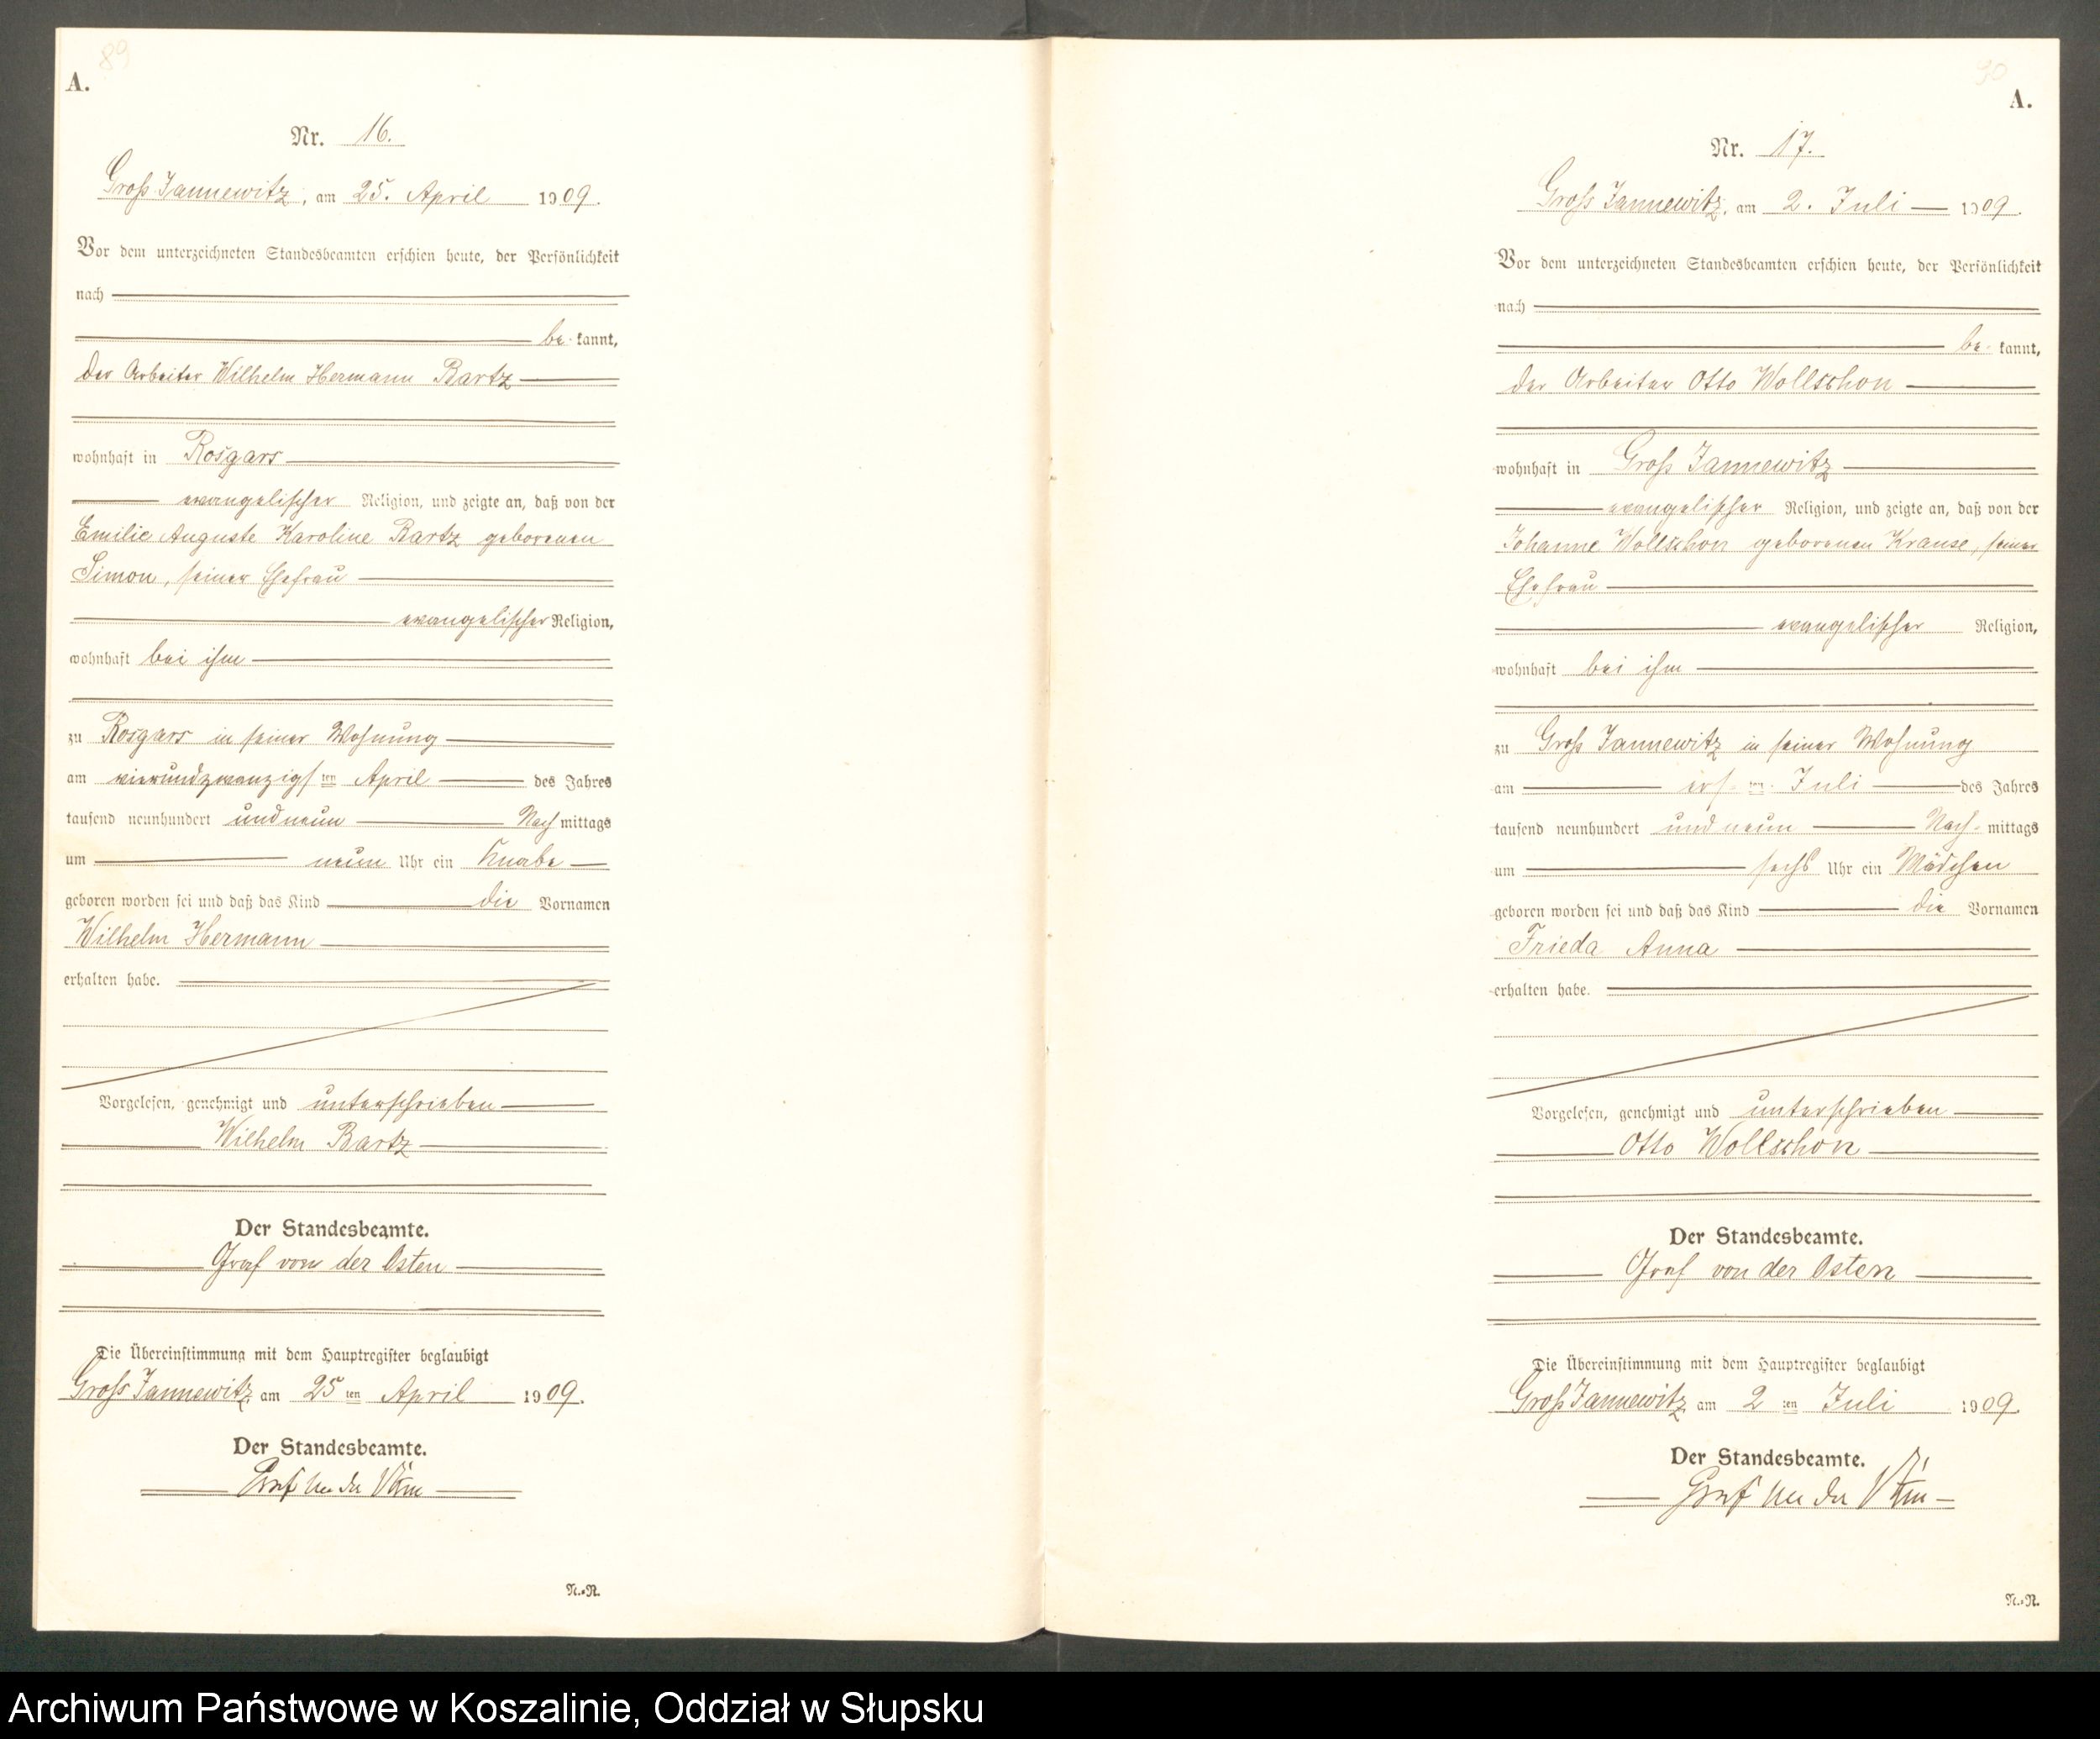 89
A.
Nr. 16.
Groß Jannewitz, am 25. April 1909.
Vor dem unterzeichneten Standesbeamten erschien heute, der Persönlichkeit
nach
be-kannt,
der Arbeiter Wilhelm Hermann Bartz
wohnhaft in Rosgars
evangelischer Religion, und zeigte an, daß von der
Emilie Auguste Karoline Bartz geborenen
Simon, seiner Ehefrau
evangelischer Religion,
wohnhaft bei ihm
zu Rosgars in seiner Wohnung
am vierundzwanzigsten April des Jahres
tausend neunhundert und neun Nachmittags
um neun Uhr ein Knabe
geboren worden sei und daß das Kind die Vornamen
Wilhelm Hermann
erhalten habe.
Vorgelesen, genehmigt und unterschrieben
Wilhelm Bartz
Der Standesbeamte.
Graf von der Osten
Die Übereinstimmung mit dem Hauptregister beglaubigt
Groß Jannewitz, am 25 ten April 1909.
Der Standesbeamte.
Graf von der Osten
N.-N.
90
A.
Nr. 17.
Groß Jannewitz, am 2. Juli 1909.
Vor dem unterzeichneten Standesbeamten erschien heute, der Persönlichkeit
nach
be-kannt,
der Arbeiter Otto Wollschon
wohnhaft in Groß Jannewitz
evangelischer Religion, und zeigte an, daß von der
Johanne Wollschon geborenen Krause, seiner
Ehefrau
evangelischer Religion,
wohnhaft bei ihm
zu Groß Jannewitz in seiner Wohnung
am ersten Juli des Jahres
tausend neunhundert und neun Nach-mittags
um sechs Uhr ein Mädchen
geboren worden sei und daß das Kind die Vornamen
Frieda Anna
erhalten habe.
Vorgelesen, genehmigt und unterschrieben
Otto Wollschon
Der Standesbeamte.
Graf von der Osten
Die Übereinstimmung mit dem Hauptregister beglaubigt
Groß Jannewitz, am 2 ten Juli 1909.
Der Standesbeamte.
Graf von der Osten
N.-N.
Archiwum Państwowe w Koszalinie, Oddział w Słupsku